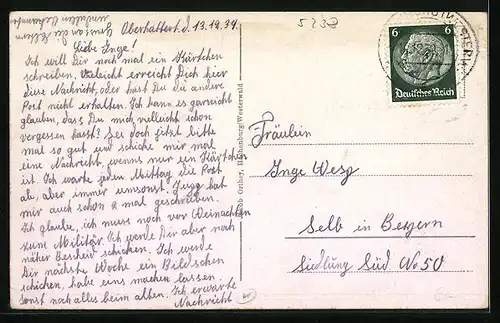 Oberhattert d. 13.12.34.
Liebe Inge!
Ich will Dir noch mal ein Kärtchen
schreiben. Vieleicht erreicht Dich hier
diese Nachricht, oder hast Du die andere
Post nicht erhalten. Ich kann es garnicht
glauben, dass Du mich vielleicht schon
vergessen hasst? Sei doch jetzt bitte
mal so gut und schicke mir mal
eine Nachricht, wenns nur ein Kärtchen
ist. Ich warte jeden Mittag die Post
ab, aber immer umsonst! Jupp hat
mir auch schon 2 mal geschrieben.
Ich glaube, ich muss noch vor Weinachten
zum Militär. Ich werde Dir aber noch
näher Bescheid schicken. Ich werde
Dir nächste Woche ein Bildschen
schicken, habe eins machen lassen.
Sonst noch alles beim alten. Ich erwarte
Nachricht
Gruss an die Eltern
Hachenburg/Westerwald
5238
6 6
Deutsches Reich
Fräulein
Inge Wesp
Selb in Bayern
Siedlung Süd No 50